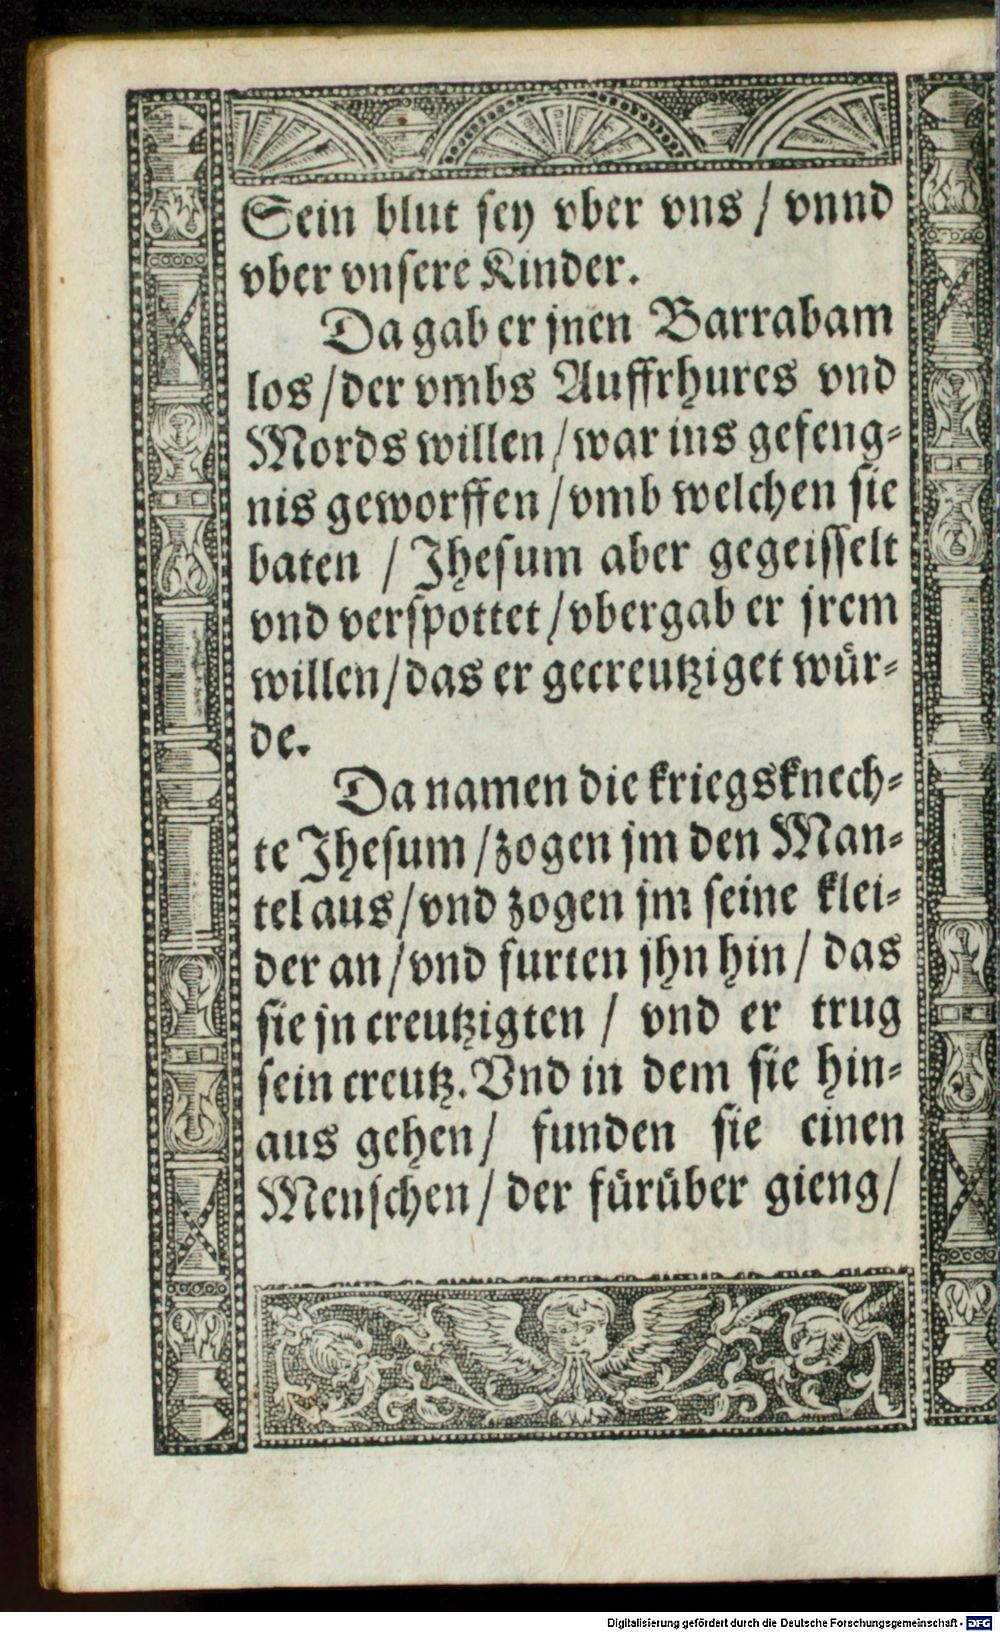 Sein blut sey vber vns / vnnd
vber vnsere Kinder.
Da gab er jnen Barrabam
los / der vmbs Auffrhures vnd
Mords willen / war ins gefeng-
nis geworffen / vmb welchen sie
baten / Jhesum aber gegeisselt
vnd verspottet / vbergab er jrem
willen / das er gecreutziget wür-
de.
Da namen die kriegsknech-
te Jhesum / zogen jm den Man-
tel aus / vnd zogen jm seine klei-
der an / vnd furten jhn hin / das
sie jn creutzigten / vnd er trug
sein creutz. Vnd in dem sie hin-
aus gehen / funden sie einen
Menschen / der fürüber gieng /
Digitalisierung gefördert durch die Deutsche Forschungsgemeinschaft - DFG